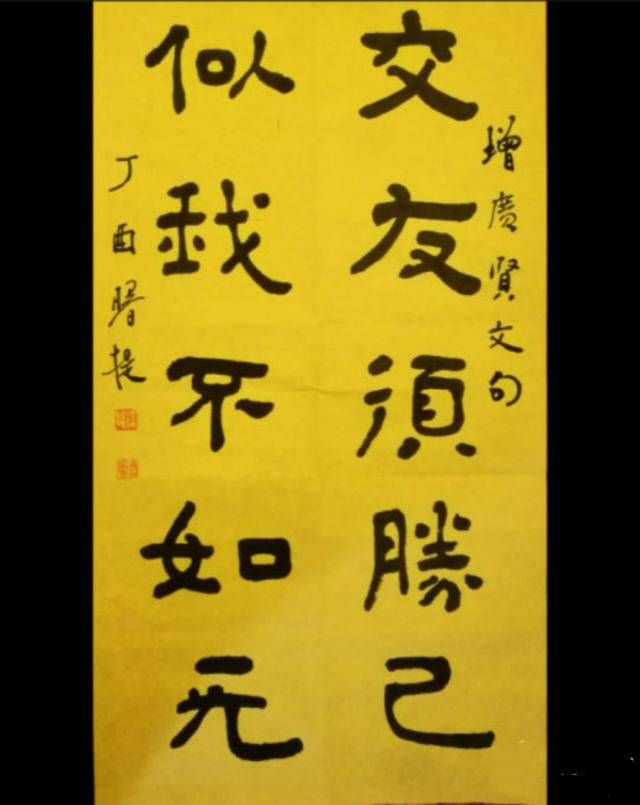 增廣賢文句
交友須勝己
似我不如无
丁酉